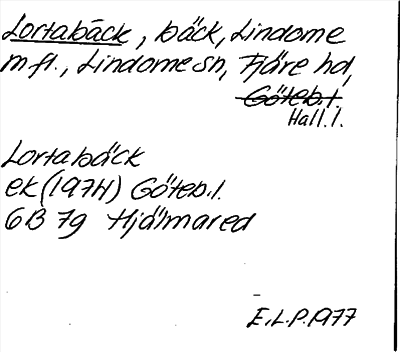 Lortabäck, bäck, Lindome
m fl., Lindome sn, Fjäre hd,
Göteb.l.
Hall.l.
Lortabäck
ek (1974) Göteb.l.
6B 7g Hjälmared
E.L.P. 1977